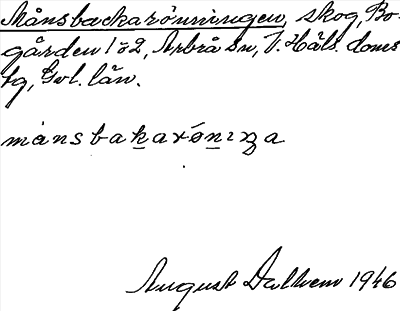 Månsbackarönningen, skog, Bo-
gården 1 o 2, Arbrå sn, V. Häls. doms
tg, Gvl. län.
månsbakarønıŋa
August Dalhem 1946